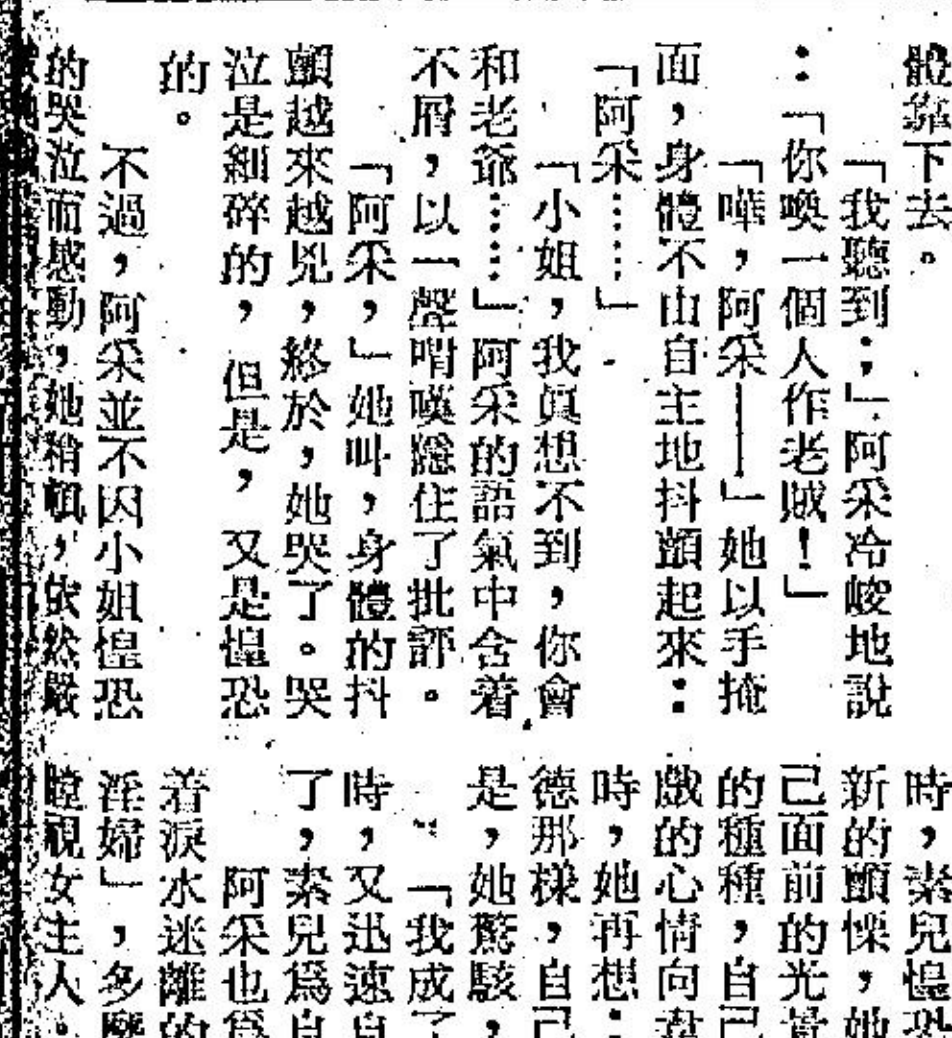 體靠下去。
「我聽到；」阿采冷峻地說
：「你喚一個人作老賊！」
「嘩，阿采——」她以手掩
面，身體不由自主地抖顫起來：
「阿采……」
「小姐，我眞想不到，你會
和老爺……」阿采的語氣中含着
不屑，以一聲喟嘆隱住了批評。
「阿采，」她叫，身體的抖
顫越來越兇，終於，她哭了。哭
泣是細碎的，但是，又是惶恐
的。
不過，阿采並不因小姐惶恐
的哭泣而感動，她稍頓，依然嚴
時，素兒惶恐
新的顫慄，她
己面前的光景
的種種，自己
戲的心情向
時，她再想：
德那樣，自己
是，她驚駭，
「我成了
時，又迅速自
了，素兒爲自
阿采也爲
着淚水迷離的
淫婦」，多麼
瞠視女主人。